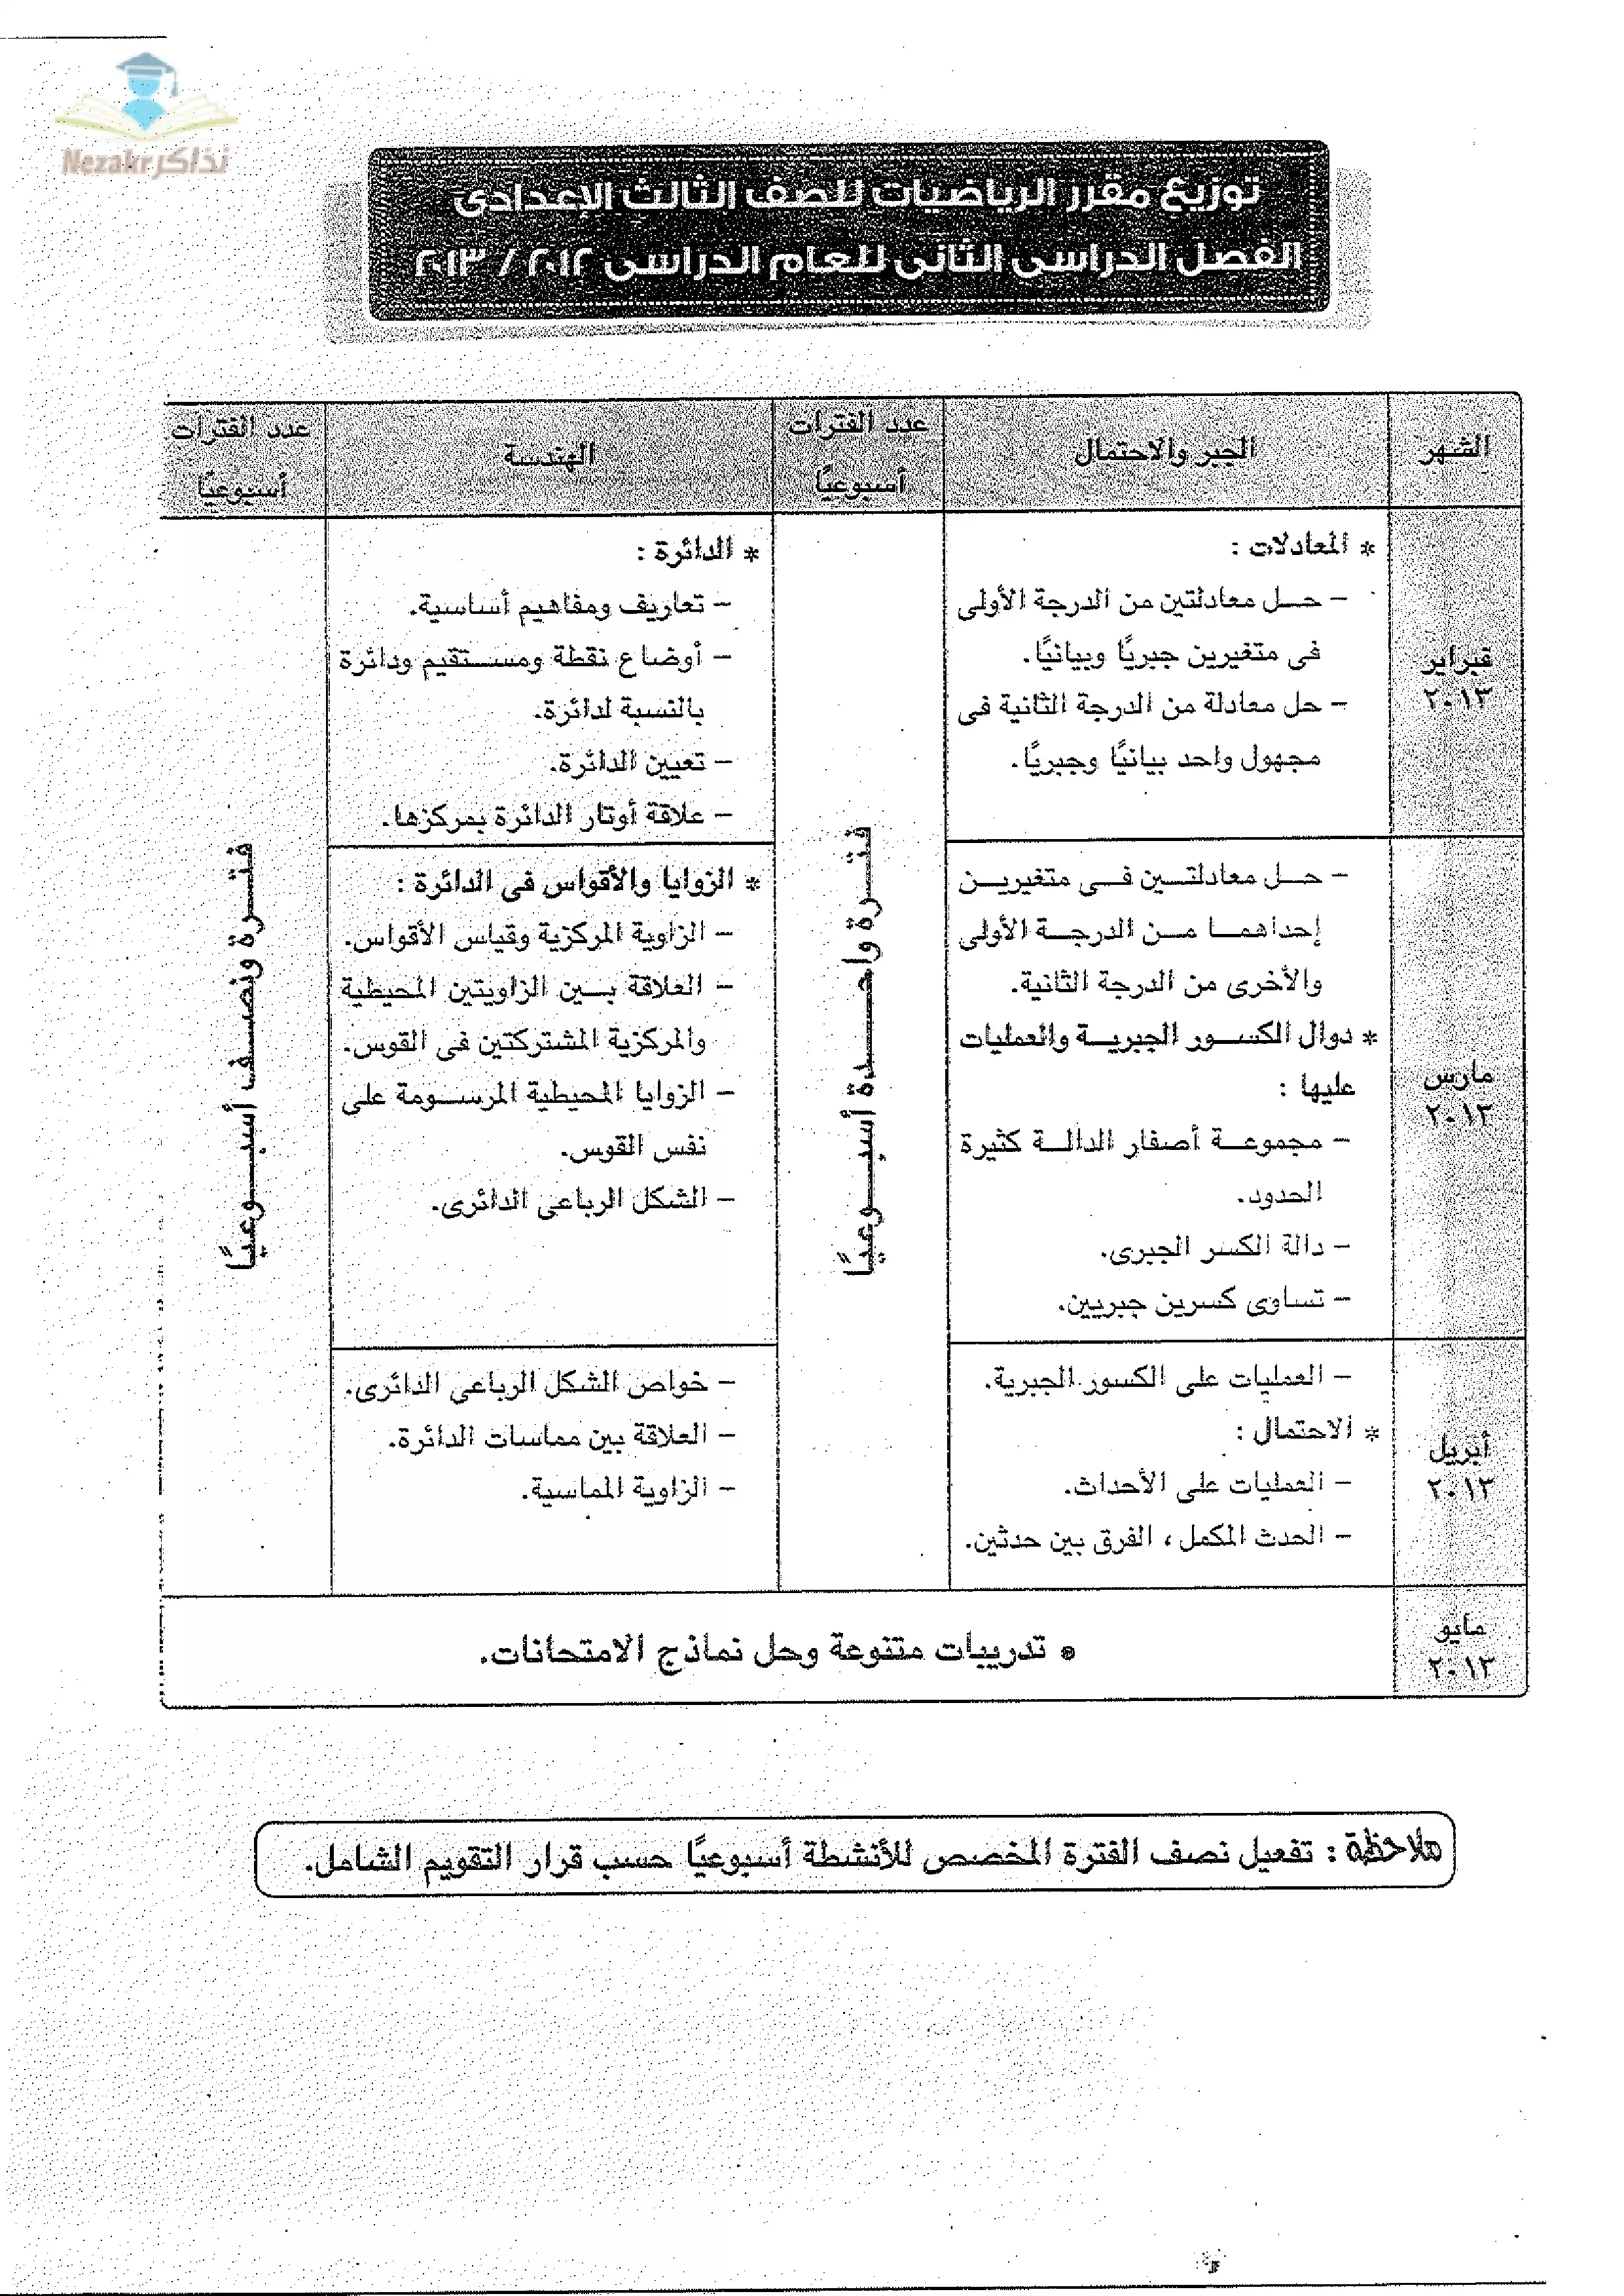 نذاكر Nezakr
توزيع مقرر الرياضيات للصف الثالث الإعدادى
الفصل الدراسى الثانى للعام الدراسى ٢٠١٢ / ٢٠١٣
الشهر
الجبر والاحتمال
عدد الفترات
أسبوعيًا
الهندسة
عدد الفترات
أسبوعيًا
فبراير
٢٠١٣
* المعادلات :
– حـل معادلتين من الدرجة الأولى
فى متغيرين جبريًا وبيانيًا.
– حل معادلة من الدرجة الثانية فى
مجهول واحد بيانيًا وجبريًا.
فتـرة واحـدة أسبـوعيًا
* الدائرة :
– تعاريف ومفاهيم أساسية.
– أوضاع نقطة ومستقيم ودائرة
بالنسبة لدائرة.
– تعيين الدائرة.
– علاقة أوتار الدائرة بمركزها.
فتـرة ونصـف أسبـوعيًا
مارس
٢٠١٣
– حـل معادلتـين فـى متغيريـن
إحداهمـا مـن الدرجـة الأولى
والأخرى من الدرجة الثانية.
* دوال الكسـور الجبريـة والعمليات
عليها :
– مجموعـة أصفار الدالـة كثيرة
الحدود.
– دالة الكسر الجبرى.
– تساوى كسرين جبريين.
* الزوايا والأقواس فى الدائرة :
– الزاوية المركزية وقياس الأقواس.
– العلاقة بـين الزاويتين المحيطية
والمركزية المشتركتين فى القوس.
– الزوايا المحيطية المرسـومة على
نفس القوس.
– الشكل الرباعى الدائرى.
أبريل
٢٠١٣
– العمليات على الكسور الجبرية.
* الاحتمال :
– العمليات على الأحداث.
– الحدث المكمل ، الفرق بين حدثين.
– خواص الشكل الرباعى الدائرى.
– العلاقة بين مماسات الدائرة.
– الزاوية المماسية.
مايو
٢٠١٣
* تدريبات متنوعة وحل نماذج الامتحانات.
ملاحظة : تفعيل نصف الفترة المخصص للأنشطة أسبوعيًا حسب قرار التقويم الشامل.